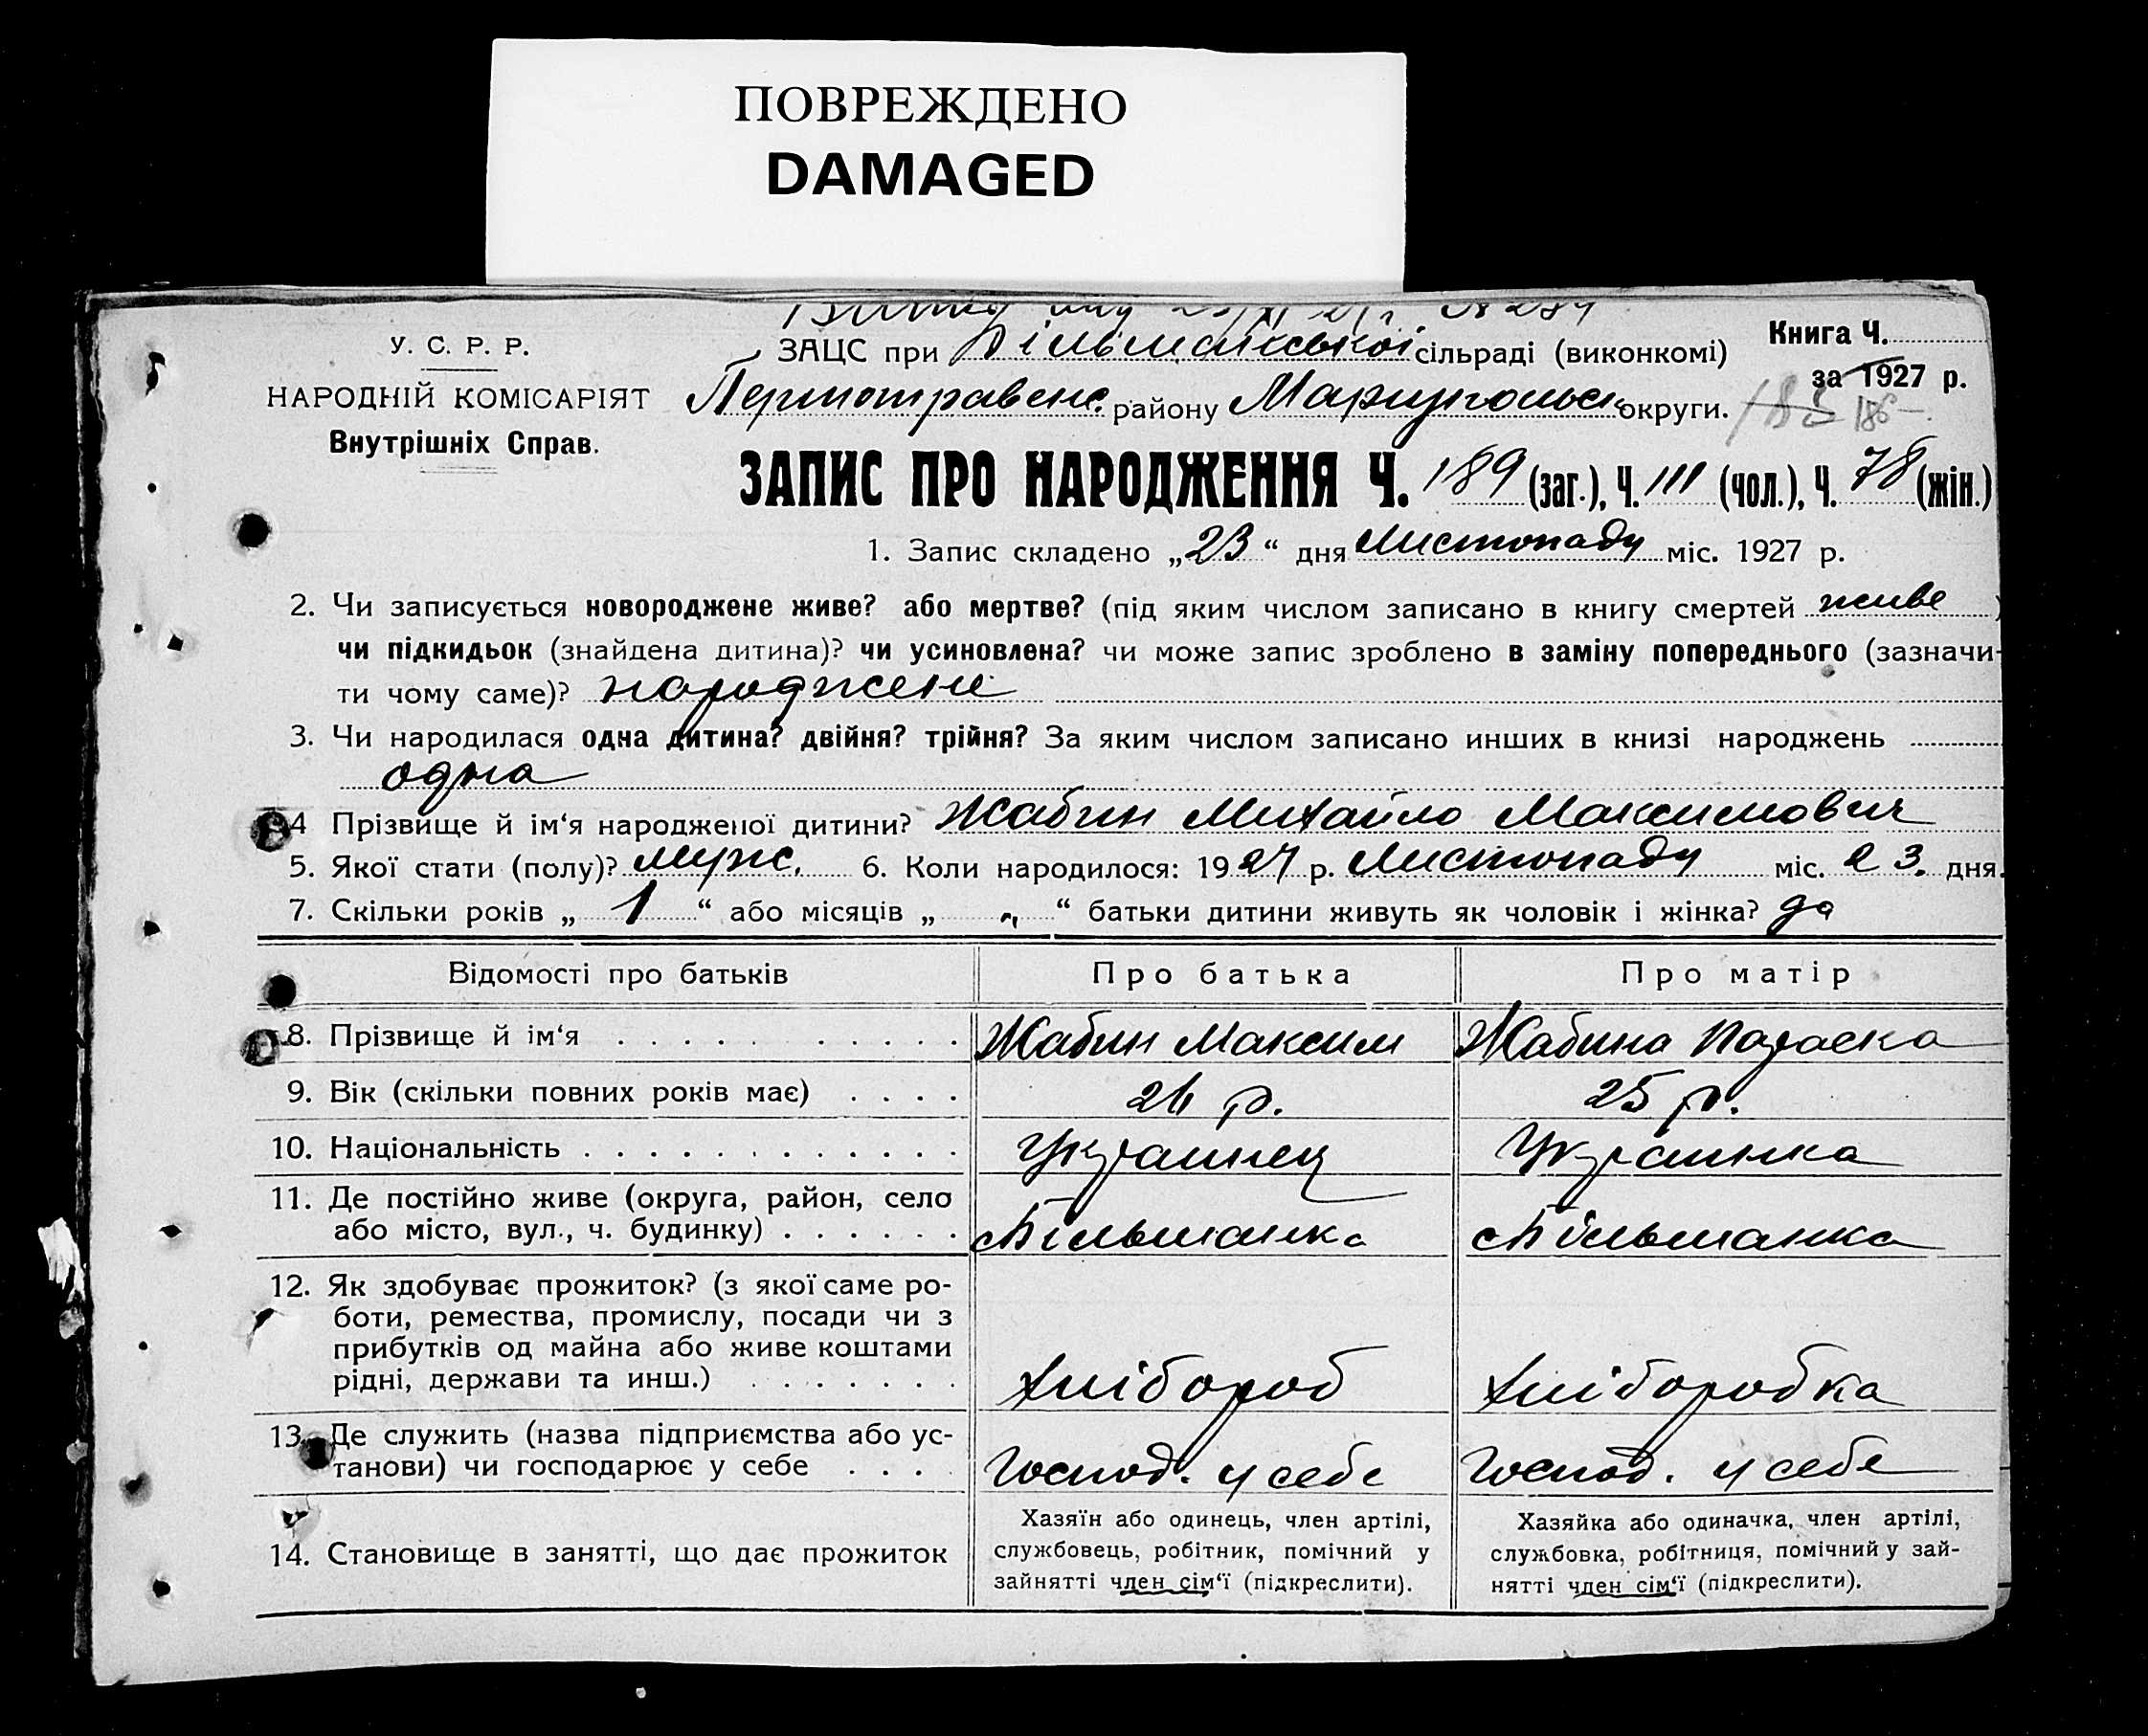 ПОВРЕЖДЕНО
DAMAGED
У. С. Р. Р.
НАРОДНІЙ КОМІСАРІЯТ
Внутрішніх Справ.
ЗАЦС при сільраді (виконкомі)
Книга Ч.
за 1927 р.
району Маріупольськ округи. 186
ЗАПИС ПРО НАРОДЖЕННЯ Ч. 189 (заг.), Ч. 111 (чол.), Ч. 78 (жін.)
1. Запис складено „23“ дня Листопаду міс. 1927 р.
2. Чи записується новороджене живе? або мертве? (під яким числом записано в книгу смертей живе )
чи підкидьок (знайдена дитина)? чи усиновлена? чи може запис зроблено в заміну попереднього (зазначи-
ти чому саме)? народжене
3. Чи народилася одна дитина? двійня? трійня? За яким числом записано инших в книзі народжень
одна
4 Прізвище й ім‘я народженої дитини? Жабин Михайло Максимович
5. Якої стати (полу)? муж. 6. Коли народилося: 1927 р. Листопаду міс. 23. дня.
7. Скільки років „ 1 “ або місяців „ „ “ батьки дитини живуть як чоловік і жінка? да
Відомості про батьків Про батька Про матір
8. Прізвище й ім‘я Жабин Максим Жабина Параска
9. Вік (скільки повних років має) р. 25 р.
10. Національність Украинец Украинка
11. Де постійно живе (округа, район, село
або місто, вул., ч. будинку)
12. Як здобуває прожиток? (з якої саме ро-
боти, ремества, промислу, посади чи з
прибутків од майна або живе коштами
рідні, держави та инш.) Хлібороб Хліборобка
13. Де служить (назва підприємства або ус-
танови) чи господарює у себе Господ. у себе Господ. у себе
14. Становище в занятті, що дає прожиток
Хазяїн або одинець, член артілі,
службовець, робітник, помічний у
зайнятті член сім‘ї (підкреслити).
Хазяйка або одиначка, член артілі,
службовка, робітниця, помічний у зай-
нятті член сім‘ї (підкреслити).